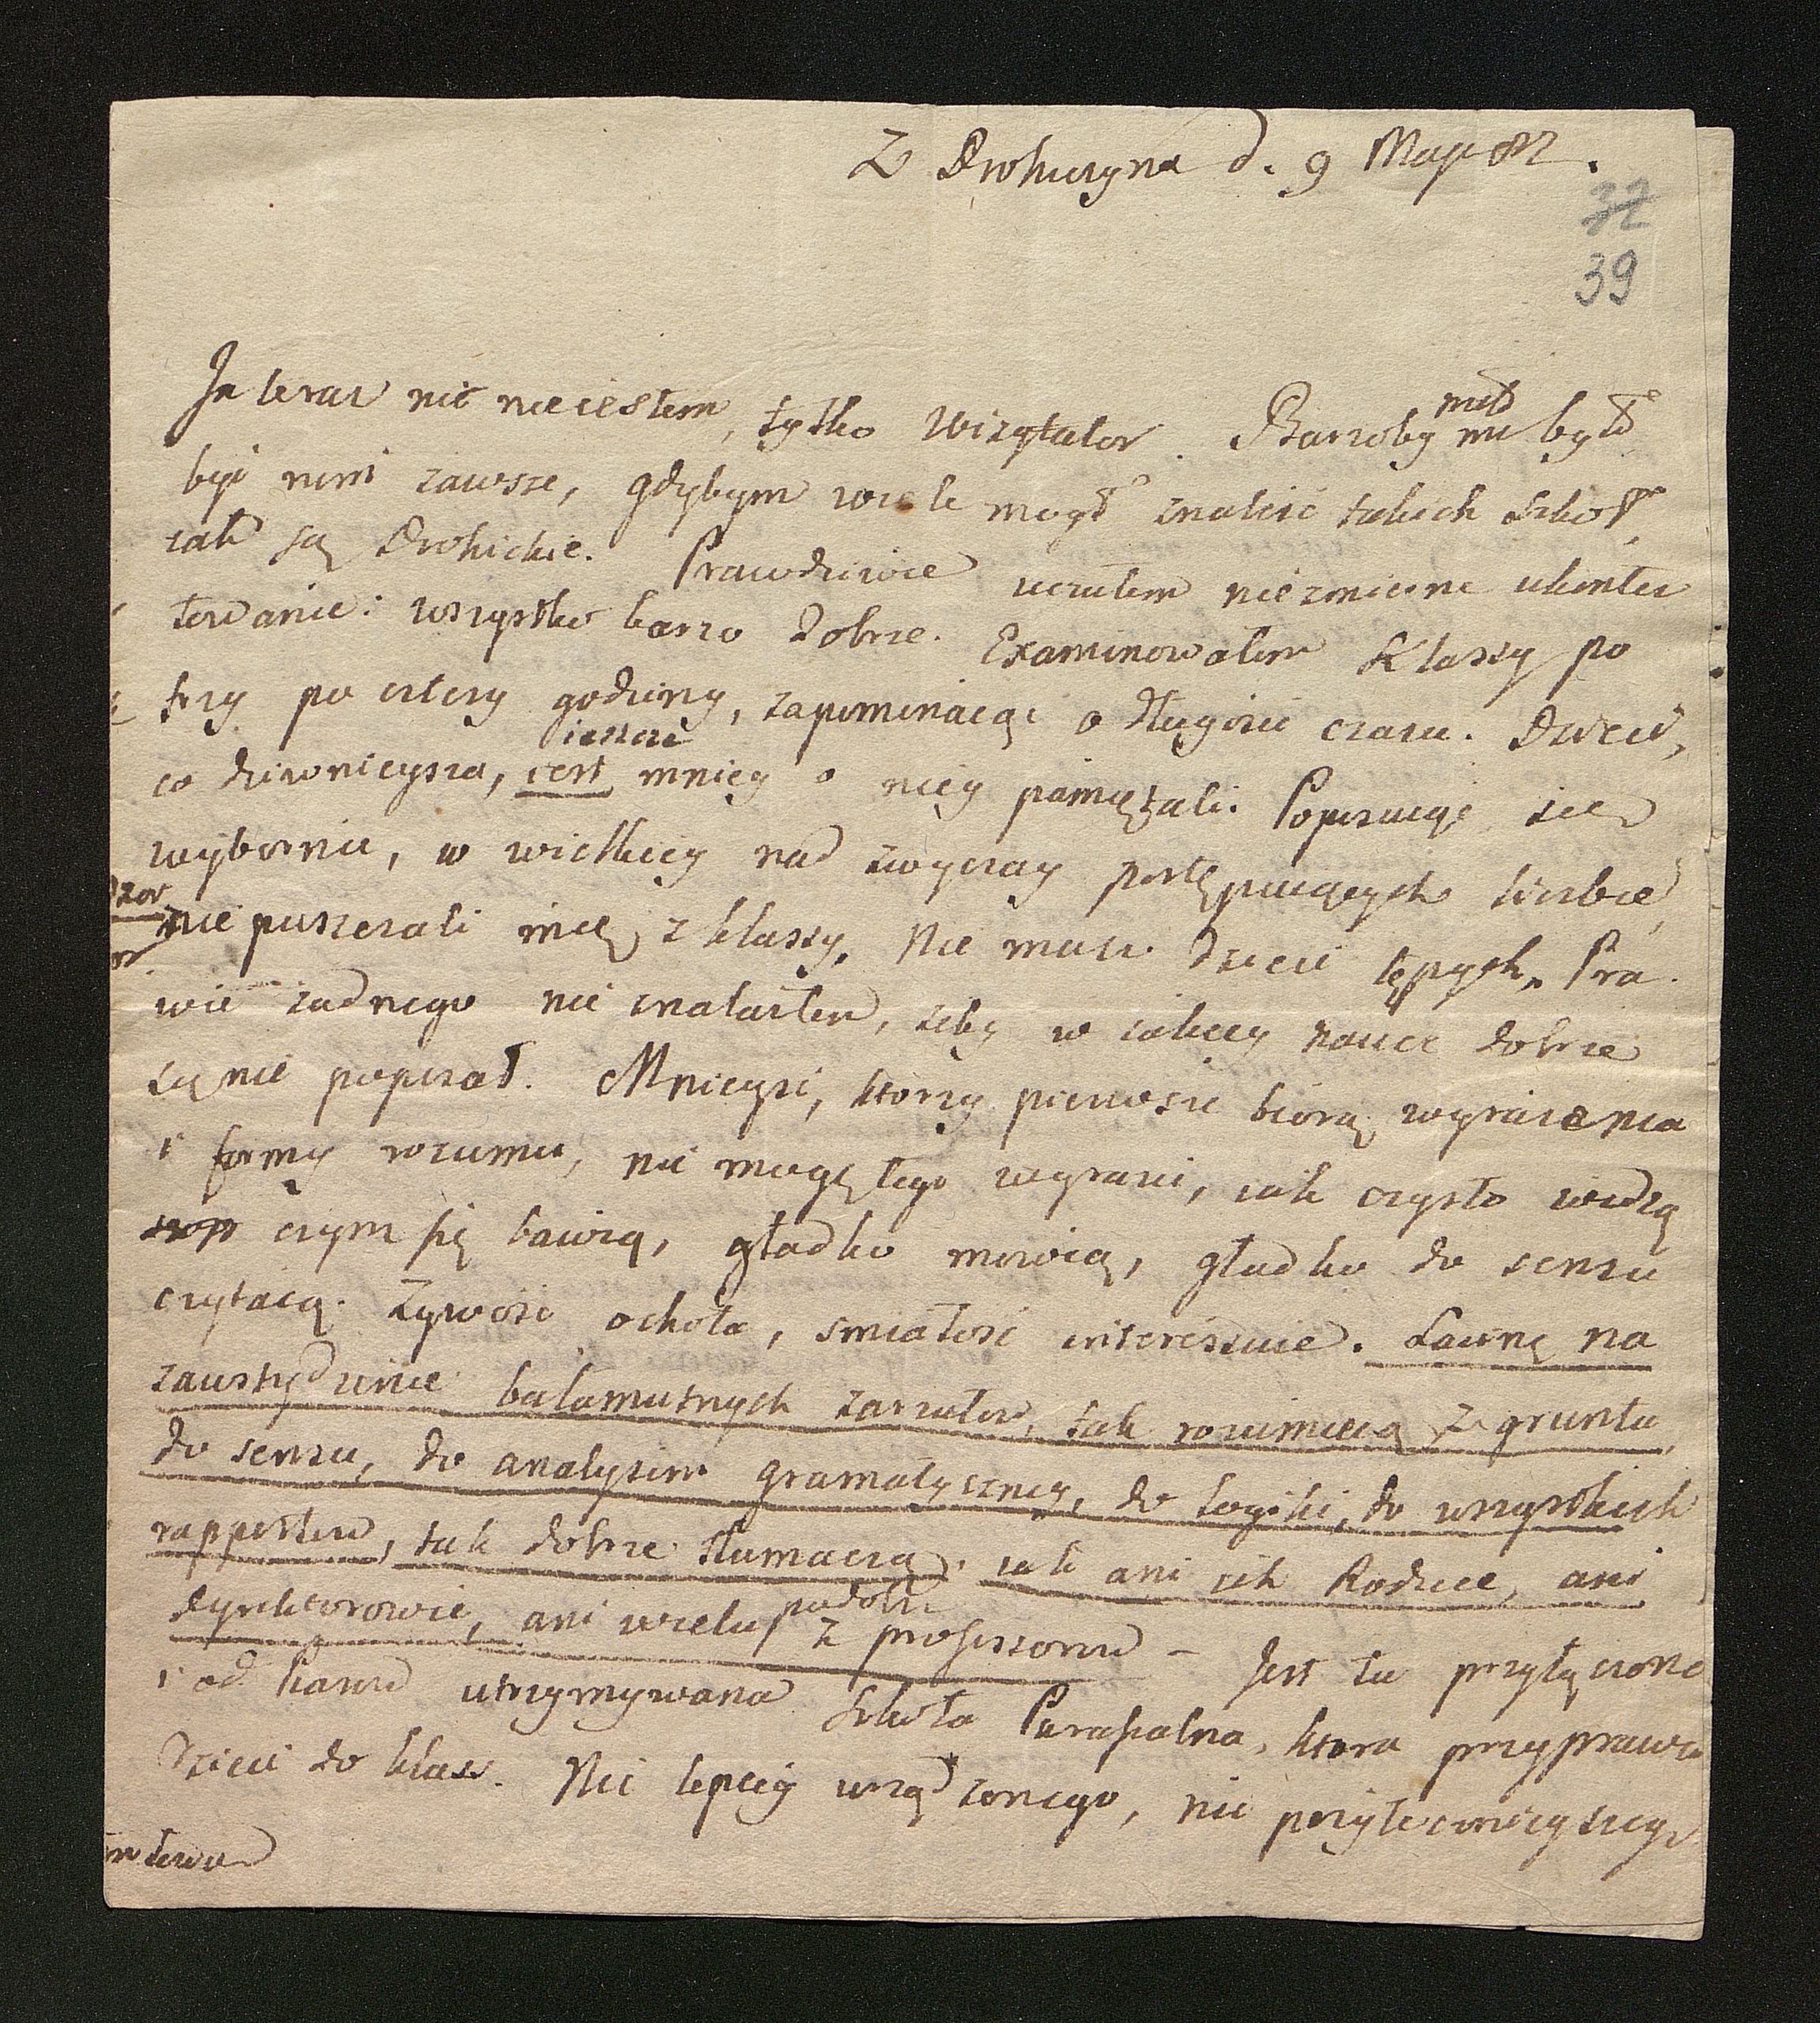 Z Drohiczyna d. 9 Maja 82.
37
39
Ja teraz nic nie iestem, tylko Wizytator. Barzoby mi miło było
być nim zawsze, gdybym wiele mogł znaleść takich szkoł,
iak są Drohickie. Prawdziwie uczułem niezmierne ukonten
towanie: wszystko barzo dobrze. Examinowałem Klassy po
trzy po cztery godziny, zapominaiąc o długości czasu. Dzieci,
co dziwnieysza, iest ieszcze mniey o niey pamiętali. Popisuiąc się
wybornie, w wielkiey nad zwyczay postępuiących liczbie,
nie puszczali mię z klassy. Nie masz dzieci tępych. Pra
wie żadnego nie znalazłem, żeby w iakiey nauce dobrze
się nie popisał. Mnieysi, ktorzy pierwsze biorą wyrażenia
i formy rozumu, nie mogę tego wyrazić, iak czysto widzą
czym się bawią, gładko mowią, gładko do sensu
czytaią. Żywość ochota, śmiałość interessuie. Łacinę na
zawstydzenie bałamutnych zarzutow, tak rozumieią z gruntu,
do sensu, do analysim gramatyczney, do logiki, do wszystkich
rapportow, tak dobrze tłumaczą, iak ani ich Rodzice, ani
dyrektorowie, ani wielu podobno z professorow – Jest tu przyłączona
i od Xiarow utrzymywana Szkoła Parafialna, ktora przyprawia
dzieci do klass. Nic lepiey urządzonego, nic pożytecznieyszego